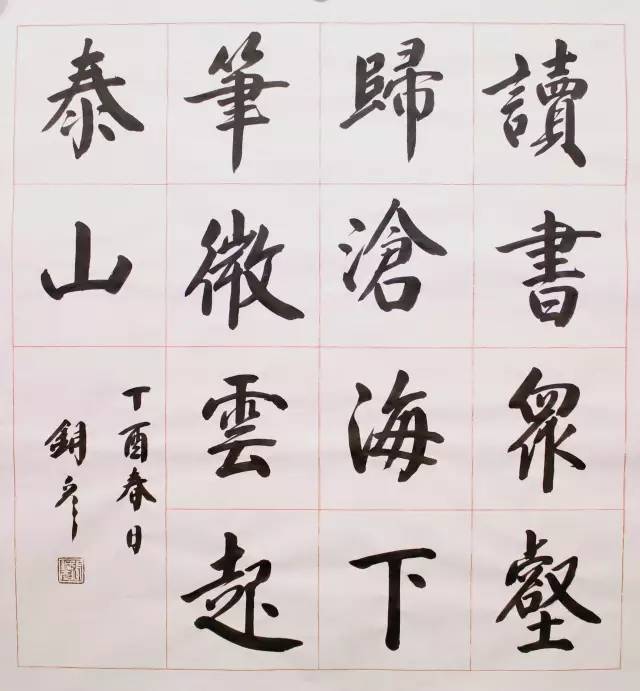 讀書衆壑
歸滄海下
筆微雲起
泰山
丁酉春日
銅彥